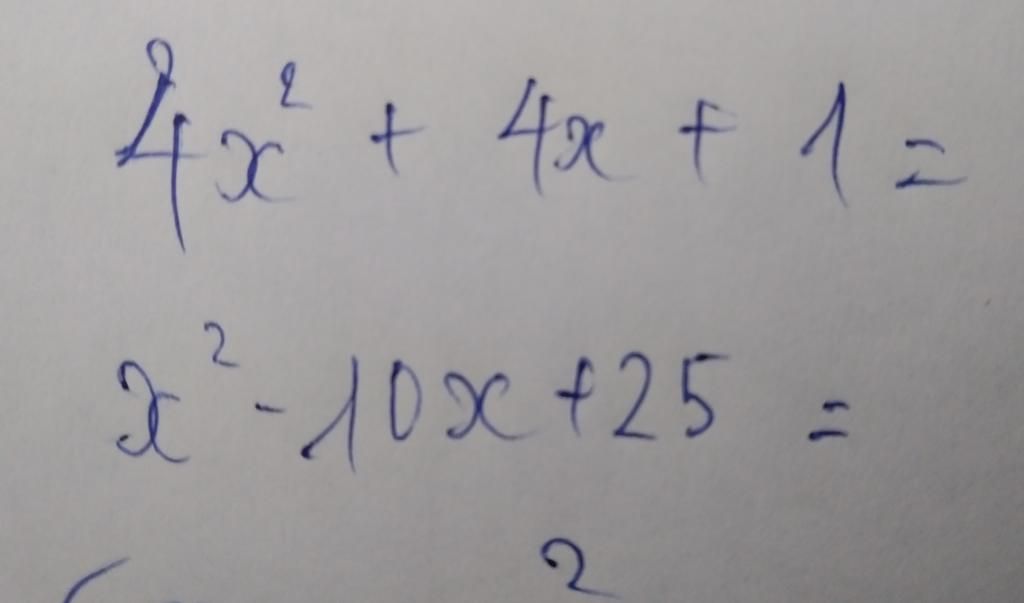 4x² + 4x + 1 =
x² - 10x + 25 =
2